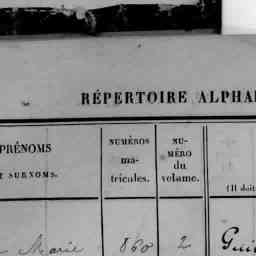 RÉPERTOIRE ALPHA
PRÉNOMS
ET SURNOMS.
NUMÉROS
ma-
tricules.
NU-
MÉRO
du
volume.
(Il doit
Marie 860 2